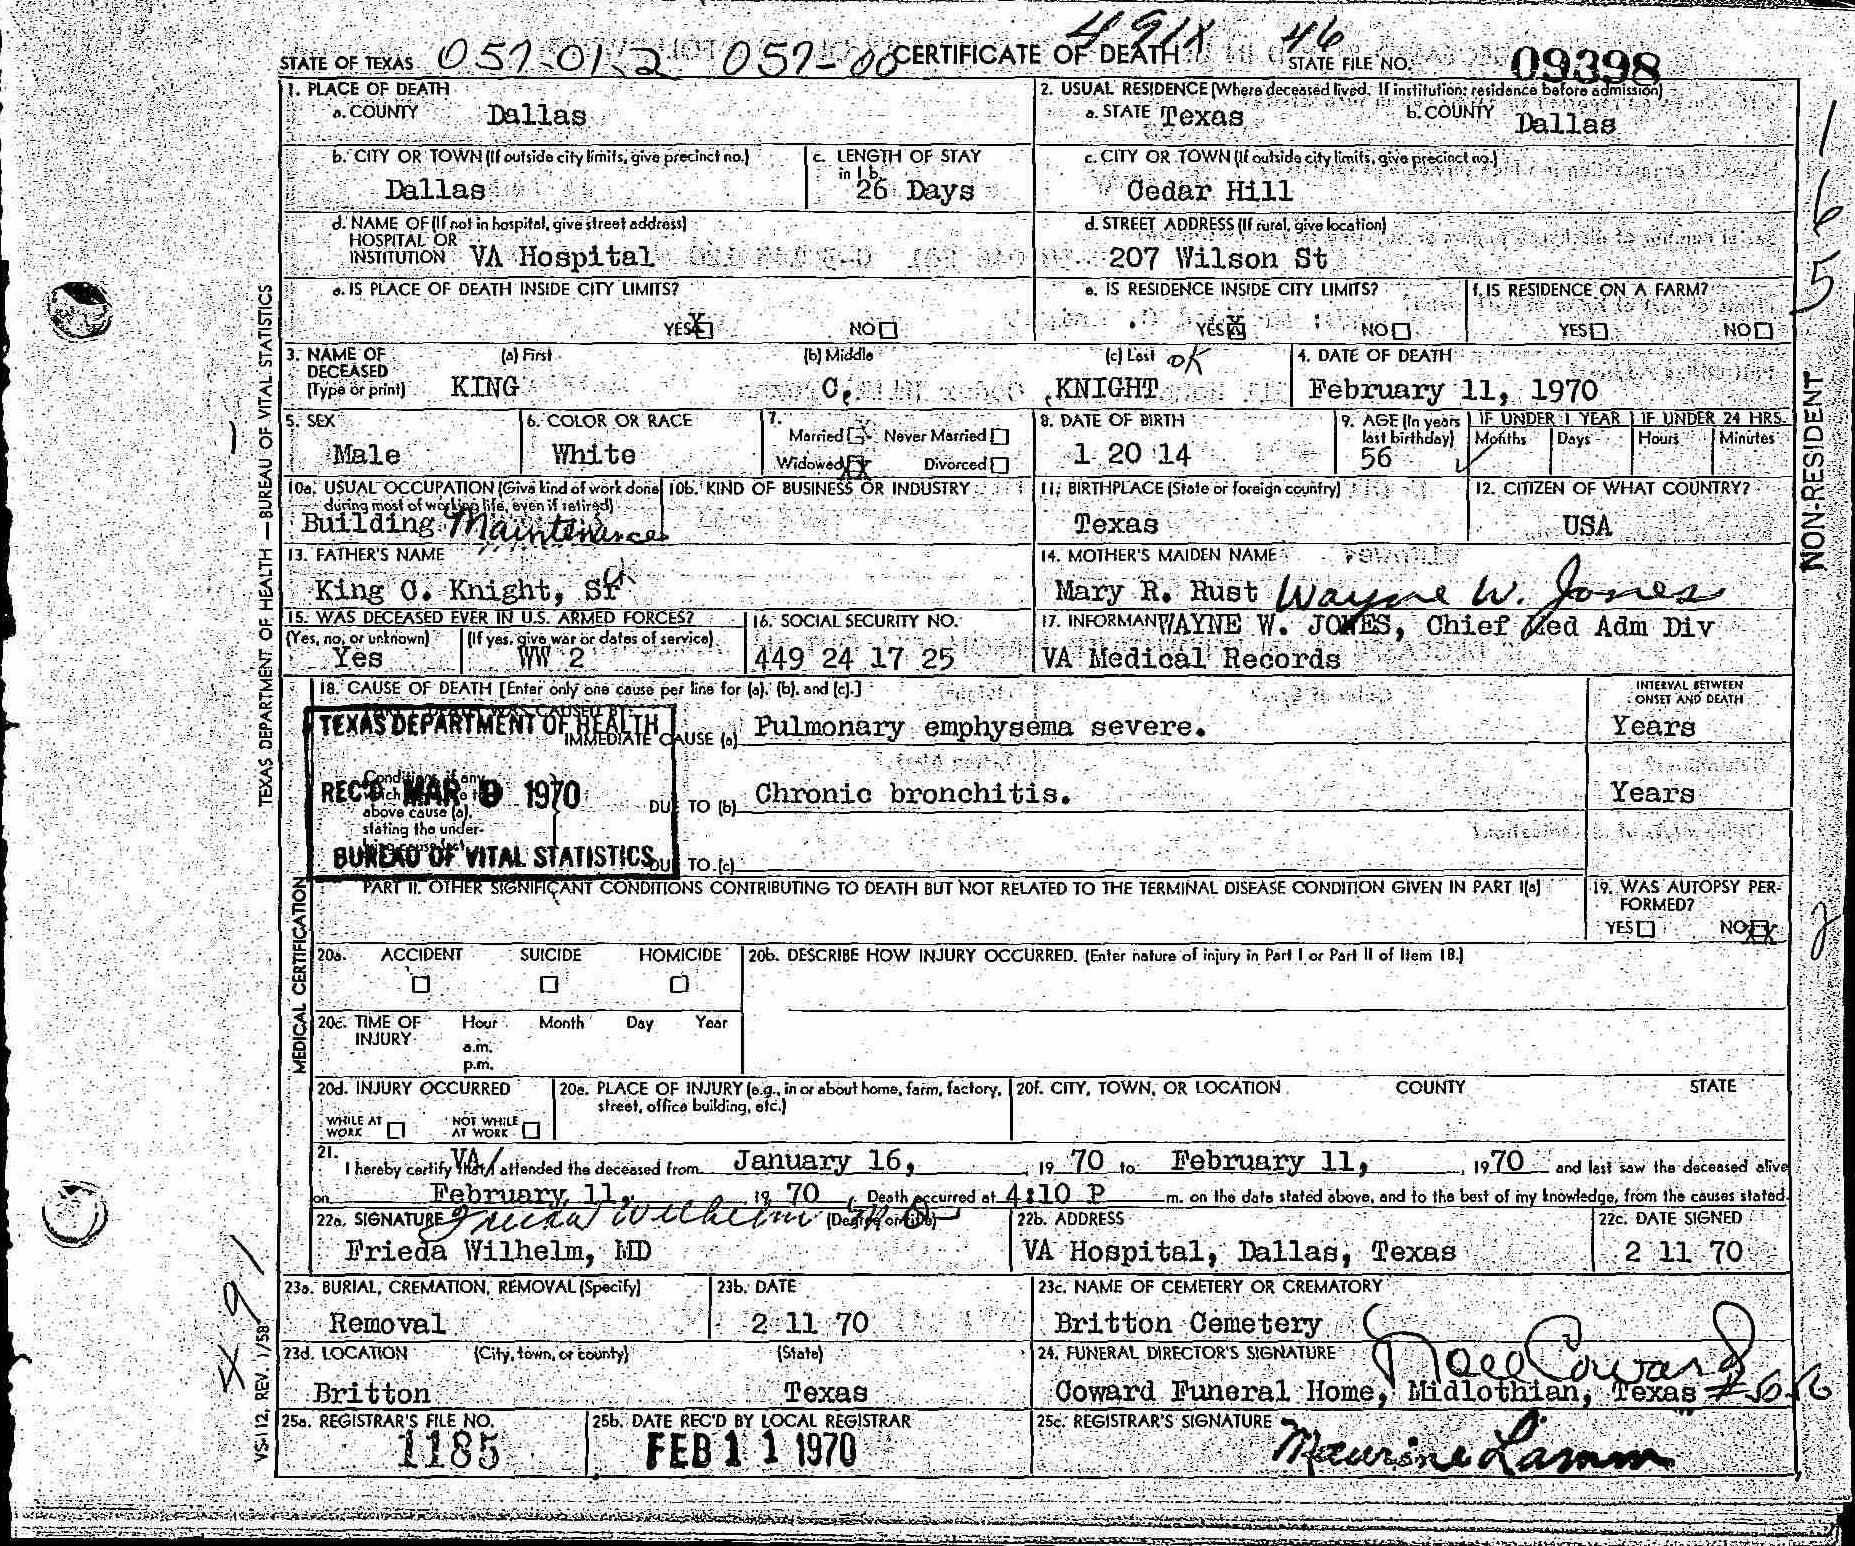 STATE OF TEXAS 057-01-2 057-00 CERTIFICATE OF DEATH 491X 46 STATE FILE NO. 09398
1. PLACE OF DEATH
a. COUNTY Dallas
2. USUAL RESIDENCE (Where deceased lived. If institution: residence before admission)
a. STATE Texas b. COUNTY Dallas
b. CITY OR TOWN (If outside city limits, give precinct no.)
Dallas
c. LENGTH OF STAY
in 1 b.
26 Days
c. CITY OR TOWN (If outside city limits, give precinct no.)
Cedar Hill
d. NAME OF (If not in hospital, give street address)
HOSPITAL OR
INSTITUTION VA Hospital
d. STREET ADDRESS (If rural, give location)
207 Wilson St
e. IS PLACE OF DEATH INSIDE CITY LIMITS?
YES X NO
e. IS RESIDENCE INSIDE CITY LIMITS?
YES X NO
f. IS RESIDENCE ON A FARM?
YES NO
1
6
5
NON-RESIDENT
3. NAME OF
DECEASED
(Type or print)
(a) First
KING
(b) Middle
C.
(c) Last OK
KNIGHT
4. DATE OF DEATH
February 11, 1970
5. SEX
Male
6. COLOR OR RACE
White
7.
Married Never Married
Widowed XX Divorced
8. DATE OF BIRTH
1 20 14
9. AGE (In years
last birthday)
56
IF UNDER 1 YEAR
Months Days
IF UNDER 24 HRS.
Hours Minutes
10a. USUAL OCCUPATION (Give kind of work done
during most of working life, even if retired)
Building Maintenance
10b. KIND OF BUSINESS OR INDUSTRY
11. BIRTHPLACE (State or foreign country)
Texas
12. CITIZEN OF WHAT COUNTRY?
USA
13. FATHER'S NAME
King C. Knight, Sr
14. MOTHER'S MAIDEN NAME
Mary R. Rust Wayne W. Jones
15. WAS DECEASED EVER IN U.S. ARMED FORCES?
(Yes, no, or unknown)
Yes
(If yes, give war or dates of service)
WW 2
16. SOCIAL SECURITY NO.
449 24 17 25
17. INFORMANT WAYNE W. JONES, Chief Med Adm Div
VA Medical Records
18. CAUSE OF DEATH [Enter only one cause per line for (a), (b), and (c).]
INTERVAL BETWEEN
ONSET AND DEATH
PART I. DEATH WAS CAUSED BY:
TEXAS DEPARTMENT OF HEALTH
IMMEDIATE CAUSE (a) Pulmonary emphysema severe. Years
Conditions, if any,
REC'D MAR 9 1970
above cause (a),
stating the under-
DUE TO (b) Chronic bronchitis. Years
BUREAU OF VITAL STATISTICS
DUE TO (c)
PART II. OTHER SIGNIFICANT CONDITIONS CONTRIBUTING TO DEATH BUT NOT RELATED TO THE TERMINAL DISEASE CONDITION GIVEN IN PART I(a)
19. WAS AUTOPSY PER-
FORMED?
YES NO XX
2
20a. ACCIDENT SUICIDE HOMICIDE
20b. DESCRIBE HOW INJURY OCCURRED. (Enter nature of injury in Part I or Part II of Item 18.)
20c. TIME OF
INJURY
Hour Month Day Year
a.m.
p.m.
20d. INJURY OCCURRED
WHILE AT
WORK
NOT WHILE
AT WORK
20e. PLACE OF INJURY (e.g., in or about home, farm, factory,
street, office building, etc.)
20f. CITY, TOWN, OR LOCATION COUNTY STATE
21.
I hereby certify that VA attended the deceased from January 16, 19 70 to February 11, 19 70 and last saw the deceased alive
on February 11, 19 70. Death occurred at 4:10 P m. on the date stated above, and to the best of my knowledge, from the causes stated.
22a. SIGNATURE Frieda Wilhelm M.D. (Degree or title)
Frieda Wilhelm, MD
22b. ADDRESS
VA Hospital, Dallas, Texas
22c. DATE SIGNED
2 11 70
23a. BURIAL, CREMATION, REMOVAL (Specify)
Removal
23b. DATE
2 11 70
23c. NAME OF CEMETERY OR CREMATORY
Britton Cemetery
23d. LOCATION (City, town, or county) (State)
Britton Texas
24. FUNERAL DIRECTOR'S SIGNATURE Noel Coward
Coward Funeral Home, Midlothian, Texas
25a. REGISTRAR'S FILE NO.
1185
25b. DATE REC'D BY LOCAL REGISTRAR
FEB 11 1970
25c. REGISTRAR'S SIGNATURE
Maurine Lamm
TEXAS DEPARTMENT OF HEALTH — BUREAU OF VITAL STATISTICS
MEDICAL CERTIFICATION
491
VS-112, REV. 1/58